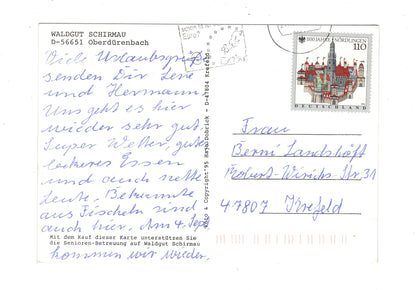 WALDGUT SCHIRMAU
D-56651 Oberdürenbach
Viele Urlaubsgrüße
senden Dir Lene
und Hermann
Uns geht es hier
wieder sehr gut
Super Wetter, gutes
leckeres Essen
und auch nette
Leute, Bekannte
aus Fischeln sind
auch hier. Am 4. Sep.
kommen wir wieder.
Mit dem Kauf dieser Karte unterstützen Sie
die Senioren-Betreuung auf Waldgut Schirmau
Copyright
D-47804 Krefeld
1100 JAHRE NÖRDLINGEN
110
DEUTSCHLAND
Frau
Berni Landshöft
Robert-Wirichs-Str. 31
47807 Krefeld